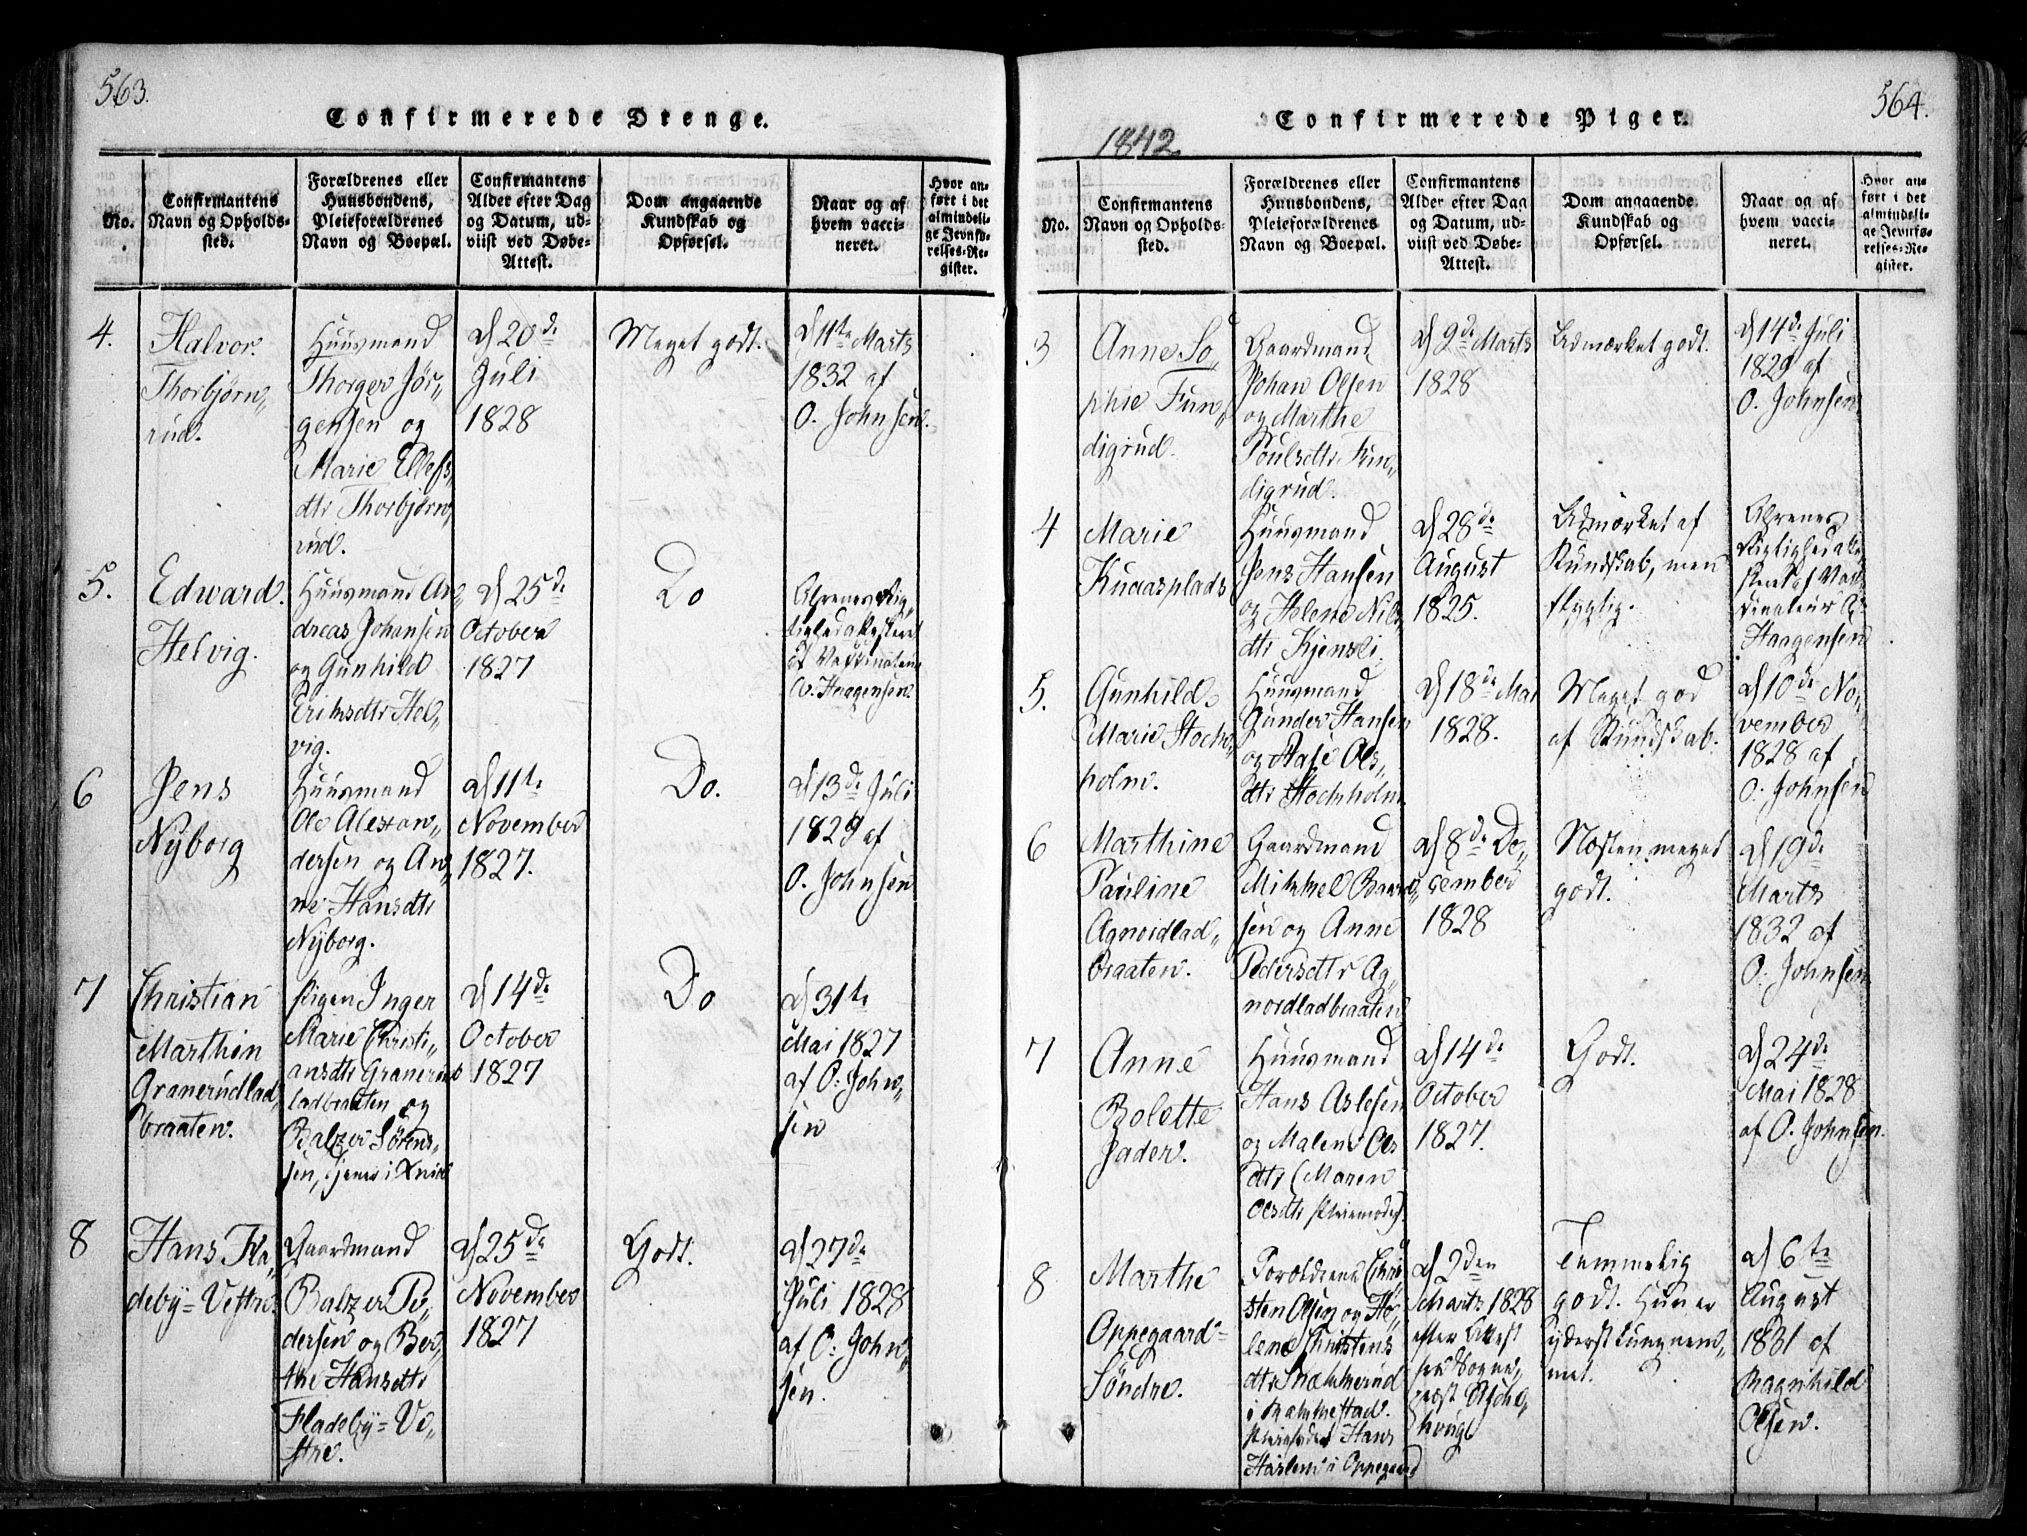 563.
Confirmerede Drenge.
No.
Confirmantens
Navn og Opholds-
sted.
Forældrenes eller
Huusbondens,
Pleieforældrenes
Navn og Boepæl.
Confirmantens
Alder efter Dag
og Datum, ud-
viist ved Døbe-
Attest.
Dom angaaende
Kundskab og
Opførsel.
Naar og af
hvem vacci-
neret.
Hvor an-
ført i det
almindeli-
ge Jevnfø-
relses-Re-
gister.
4.
Halvor
Thorbjørn„
rud.
Huusmand
Thorger Jør„
gensen og
Marie Ellefs„
dtr Thorbjørn„
rud.
d 20de
Juli
1828
Meget godt.
d 11te Marts
1832 af
O. Johnsen.
5.
Edward
Helvig.
Huusmand An„
dreas Johansen
og Gunhild
Eriksdtr Hel„
vig.
d 25de
October
1827
Do
Ahrenes Rig„
tighed
af Vaccinateur
Haagensen.
6
Jens
Nyborg
Huusmand
Ole Alexan„
dersen og An„
ne Hansdtr
Nyborg.
d 11te
November
1827.
Do.
d 13de Juli
1829 af
O. Johnsen
7
Christian
Marthin
Granerudlad„
braaten.
Pigen Inger
Marie Christi„
ansdtr Granerud
ladbraaten og
Baltzer Sørens„
sen, tjener i
d 14de
October
1827
Do
d 31te
Mai 1827
af O. John„
sen
8
Hans Fla„
deby=Vestre.
Gaardmand
Baltzer Pe„
dersen og Ber„
the Hansdtr
Fladeby=Ve„
stre.
d 25de
November
1827
Godt.
d 27de
Juli 1828
af O. John„
sen.
564.
Confirmerede Piger.
1842
No.
Confirmantens
Navn og Opholds-
sted.
Forældrenes eller
Huusbondens,
Pleieforældrenes
Navn og Boepæl.
Confirmantens
Alder efter Dag
og Datum, ud-
viist ved Døbe-
Attest.
Dom angaaende
Kundskab og
Opførsel.
Naar og af
hvem vacci-
neret.
Hvor an-
ført i det
almindeli-
ge Jevnfø-
relses-Re-
gister.
3
Anne So„
phie Fun„
digrud.
Gaardmand
Johan Olsen
og Marthe
Poulsdtr Fun„
digrud.
d 9de Marts
1828
Udmærket godt.
d 14de Juli
1829 af
O. Johnsen
4
Marie
Huusmand
Jens Hansen
og Helene Nils„
dtr Kjensli.
d 28de
August
1825.
Udmærket af
Kundskab, men
Ahrenes
Rigtighed
Haagensen
5.
Gunhild
Marie Stock„
holm.
Huusmand
Gunder Hansen
og Aase Ols„
dtr Stockholm
d 18de Mai
1828.
Meget god
af Kundskab.
d 10de No„
vember
1828 af
O. Johnsen
6
Marthine
Pauline
Agnoidlad„
braaten.
Gaardmand
Mikkel
sen og Anne
Pedersdtr Ag„
nordladbraaten
d 8de De„
cember
1828
Næsten meget
godt.
d 19de
Marts
1832 af
O. Johnsen
7
Anne
Bolette
Jader.
Huusmand
Hans Aslesen
og Malene Ols
dtr (Maren
Olsdtr
d 14de
October
1827.
Godt.
d 24de
Mai 1828
af O. Johnsen.
8
Marthe
Oppegaard=
Søndre.
Forældrene Chri„
sten Olsen og He„
lene Christens
dtr
i
Hans
i Oppegaard
d 2den
Marts 1828
efter Attest
fra Sogne„
præst
Temmelig
godt. Hun er
yderst tungnem„
met.
d 6te
August
1831 af
Magnhild
Olsen.